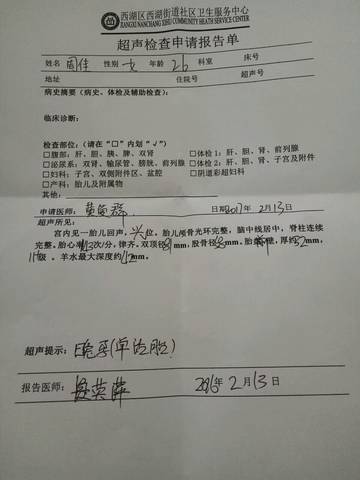 西湖区西湖街道社区卫生服务中心
JIANGXI NANCHANG XIHU COMMUNITY HEATH SERVICE CENTER
超声检查申请报告单
姓名 周佳 性别 女 年龄 26 科室 床号
地址 住院号 超声号
病史摘要（病史、体检及辅助检查）：
临床诊断：
检查部位：（请在“□”内划“√”）
□腹部：肝、胆、胰、脾、双肾 □体检1：肝、胆、肾、前列腺
□泌尿系：双肾、输尿管、膀胱、前列腺 □体检2：肝、胆、肾、子宫及附件
□妇科：子宫、双侧附件区、盆腔 □阴道彩超妇科
□产科：胎儿及附属物
其他：
申请医师： 黄 日期2017年2月13日
超声所见：
宫内见一胎儿回声，头位，胎儿颅骨光环完整，脑中线居中，脊柱连续
完整。胎心率 次/分，律齐。双顶径 mm，股骨径 mm。胎盘 壁，厚约32mm，
级。羊水最大深度约 mm。
超声提示： 晚孕(单活胎)
报告医师： 2016年2月13日